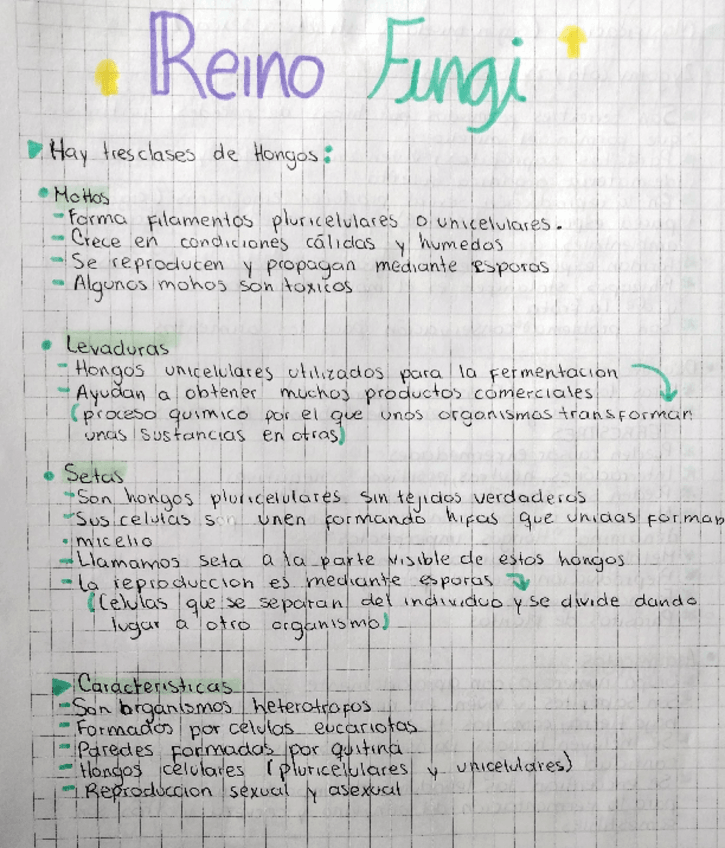 Reino Fungi
Hay tres clases de Hongos:
Mohos
- Forma filamentos pluricelulares o unicelulares.
- Crece en condiciones cálidas y humedas
- Se reproducen y propagan mediante esporas
- Algunos mohos son toxicos
Levaduras
- Hongos unicelulares utilizados para la fermentacion
- Ayudan a obtener muchos productos comerciales
(proceso quimico por el que unos organismos transforman
unas sustancias en otras)
Setas
- Son hongos pluricelulares sin tejidos verdaderos
- Sus celulas son unen formando hifas que unidas forman
micelio
- Llamamos seta a la parte visible de estos hongos
- La reproduccion es mediante esporas
(Celulas que se separan del individuo y se divide dando
lugar a otro organismo)
Caracteristicas
- Son organismos heterotrofos
- Formados por celulas eucariotas
- Paredes formadas por quitina
- Hongos celulares (pluricelulares y unicelulares)
- Reproduccion sexual y asexual